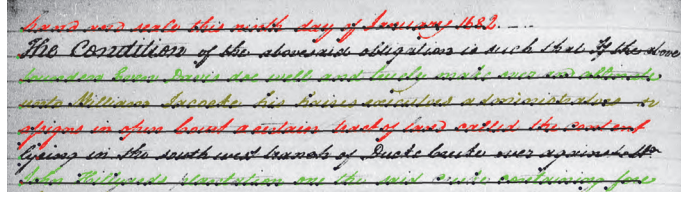 hand and seale this ninth day of January 1682.
The Condition of the abovesaid obligation is such that If the above
bounden Evan Davis doe well and truly make over and
unto William Jacocke his haires executors administrators or
assigns in open Court a certain tract of land called the content
lyeing in the south west branch of Ducke Creeke over against Mr
John Hillyards plantation one the said creeke containing five